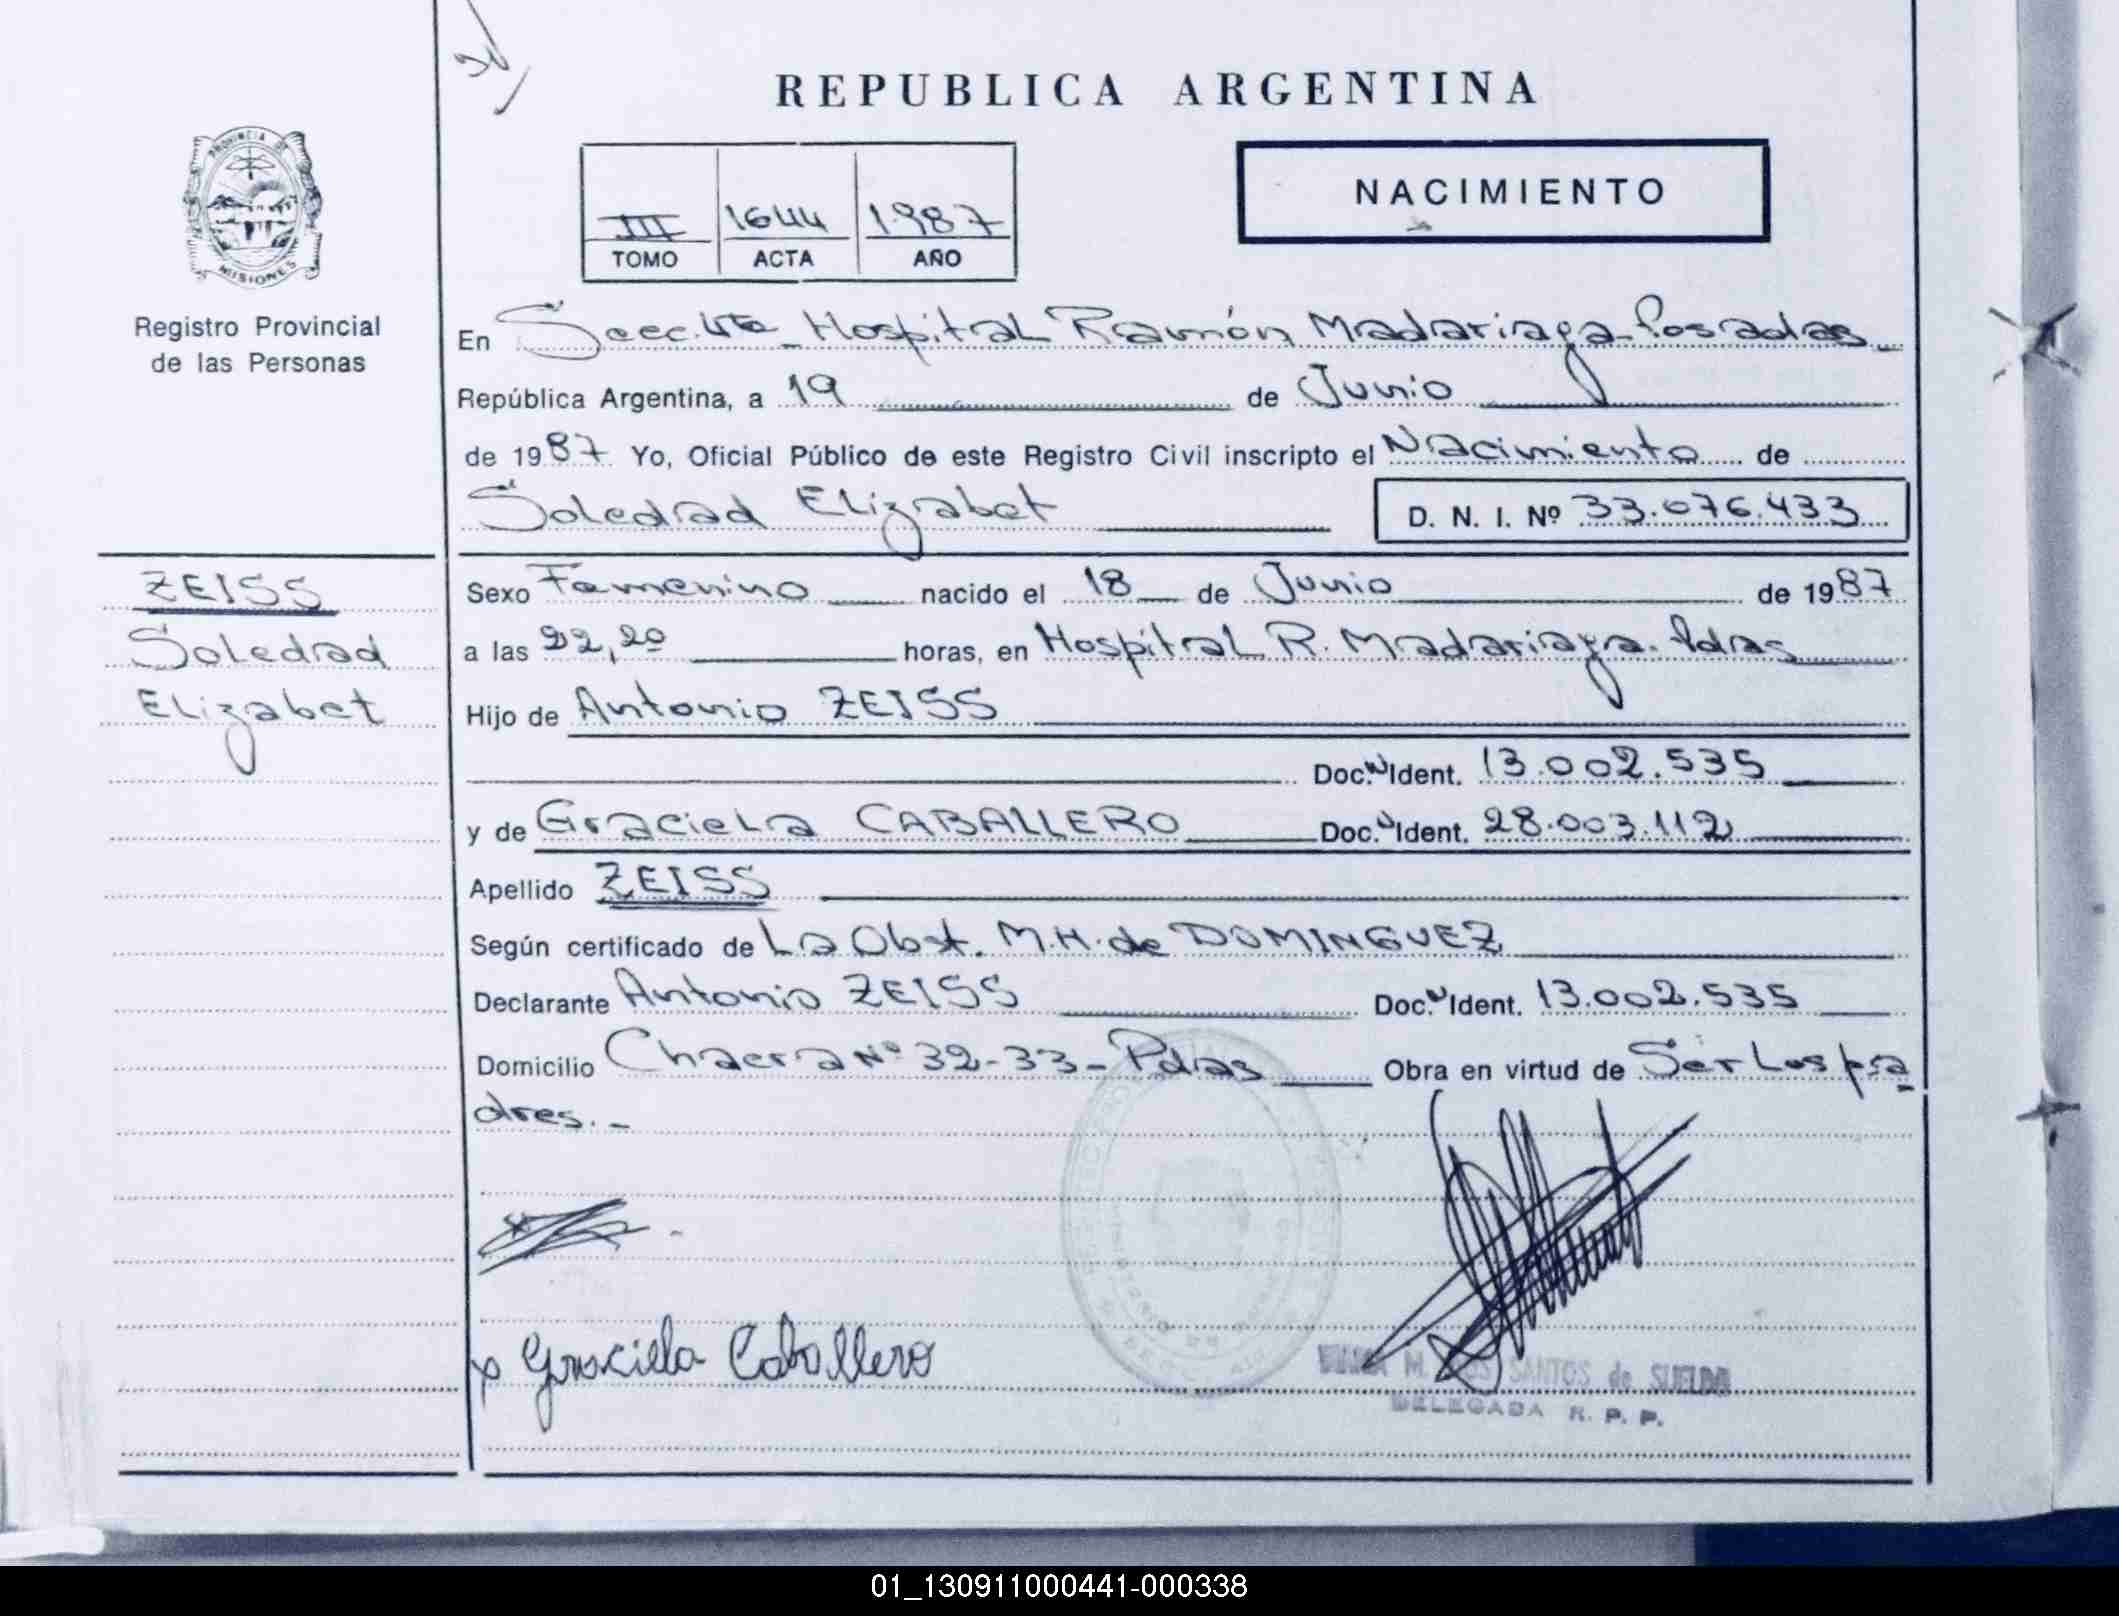 REPUBLICA ARGENTINA
PROVINCIA DE
MISIONES
Registro Provincial
de las Personas
III 1644 1987
TOMO ACTA AÑO
NACIMIENTO
En Secc. 4ta Hospital Ramón Madariaga Posadas
República Argentina, a 19 de Junio
de 1987 Yo, Oficial Público de este Registro Civil inscripto el Nacimiento de
Soledad Elizabet D. N. I. Nº 33.076.433
ZEISS
Soledad
Elizabet
Sexo Femenino nacido el 18 de Junio de 1987
a las 22,20 horas, en Hospital R. Madariaga. Pdas
Hijo de Antonio ZEISS
Doc. Ident. 13.002.535
y de Graciela CABALLERO Doc. Ident. 28.003.112
Apellido ZEISS
Según certificado de La Obst. M.H. de DOMINGUEZ
Declarante Antonio ZEISS Doc. Ident. 13.002.535
Domicilio Chacra Nº 32-33- Pdas Obra en virtud de Ser Los pa
dres.-
x Graciela Caballero
M. DOS SANTOS de SUELDO
DELEGADA R. P. P.
01_130911000441-000338